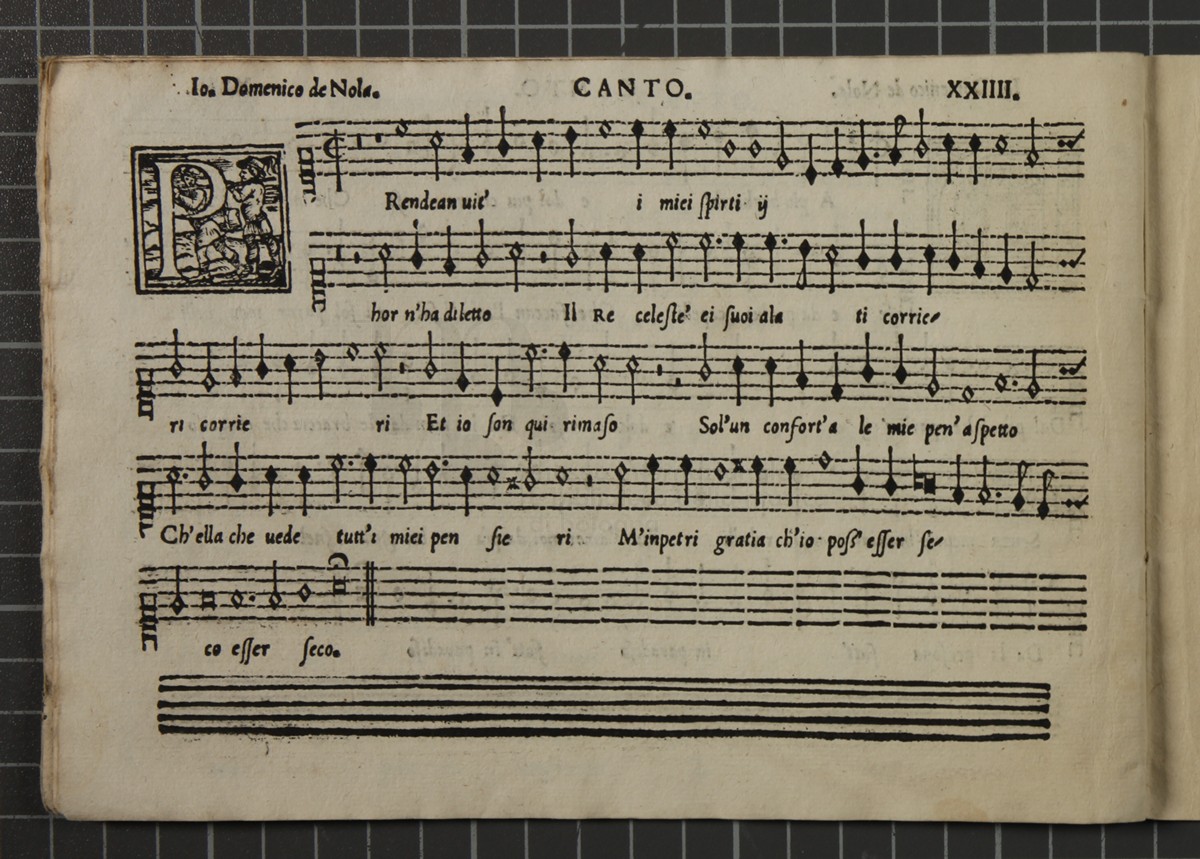 Io. Domenico de Nola. CANTO. XXIIII.
P Rendean uit' i miei spirti ij
hor n'ha diletto Il Re celeste' ei suoi ala ti corrie-
ri corrie ri Et io son qui rimaso Sol'un confort'a le mie pen' aspetto
Ch'ella che uede tutt'i miei pen sie ri M'inpetri gratia ch'io poss' esser se-
co esser seco.